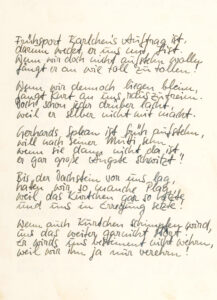 Frühsport Zärtchen's Auftrag ist,
darum weckt er uns und frist.
Wenn wir doch nicht aufstehn wollen
fängt er an wie toll zu rollen!
Wenn wir dennoch liegen bleiben,
fängt Kurt an uns rauszutreiben.
schon jeder drüber lacht,
weil er selber nicht mit macht.
Gerhards Spleen ist früh aufstehn,
will nach seiner Mutti sehn
wenn sie dann nicht da ist
er gar große Ängste schwitzt!
Bis der Dachstein vor uns lag,
hatten wir so manche Plag,
weil das Kürtchen gar so
und uns in Erregung setzt.
Wenn auch Kürtchen schimpfen wird,
uns das weiter garnicht stört!
Er wirds uns bestimmt nicht wehren,
weil wir ihn ja nur verehren!